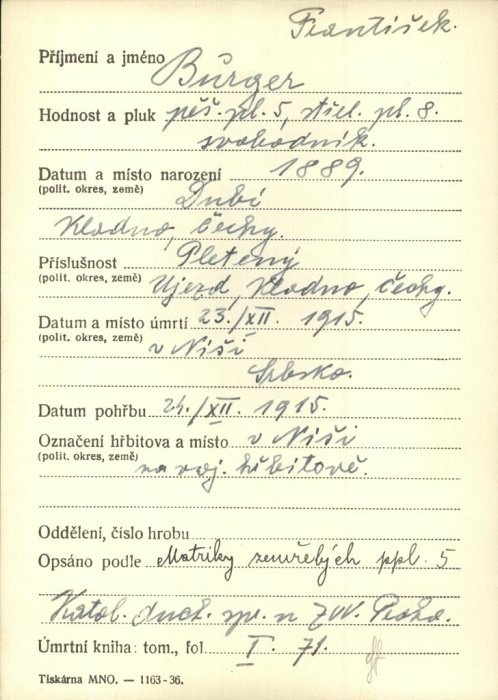 František.
Příjmení a jméno Bürger
Hodnost a pluk pěš. pl. 5, střel. pl. 8.
svobodník.
Datum a místo narození 1889.
(polit. okres, země) Dubí
Kladno, Čechy.
Příslušnost Pletený
(polit. okres, země) Újezd, Kladno, Čechy.
Datum a místo úmrtí 23./XII. 1915.
(polit. okres, země)
v Niši
Srbsko.
Datum pohřbu 24./XII. 1915.
Označení hřbitova a místo v Niši
(polit. okres, země) na voj. hřbitově.
Oddělení, číslo hrobu
Opsáno podle Matriky zemřelých ppl. 5
Katol. duch. spr. n ZVV. Praha.
Úmrtní kniha: tom., fol. I. 71.
Tiskárna MNO. — 1163-36.